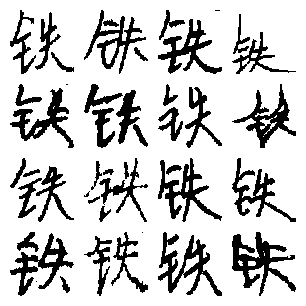 铁铁铁铁
铁铁铁铁
铁铁铁铁
铁铁铁铁